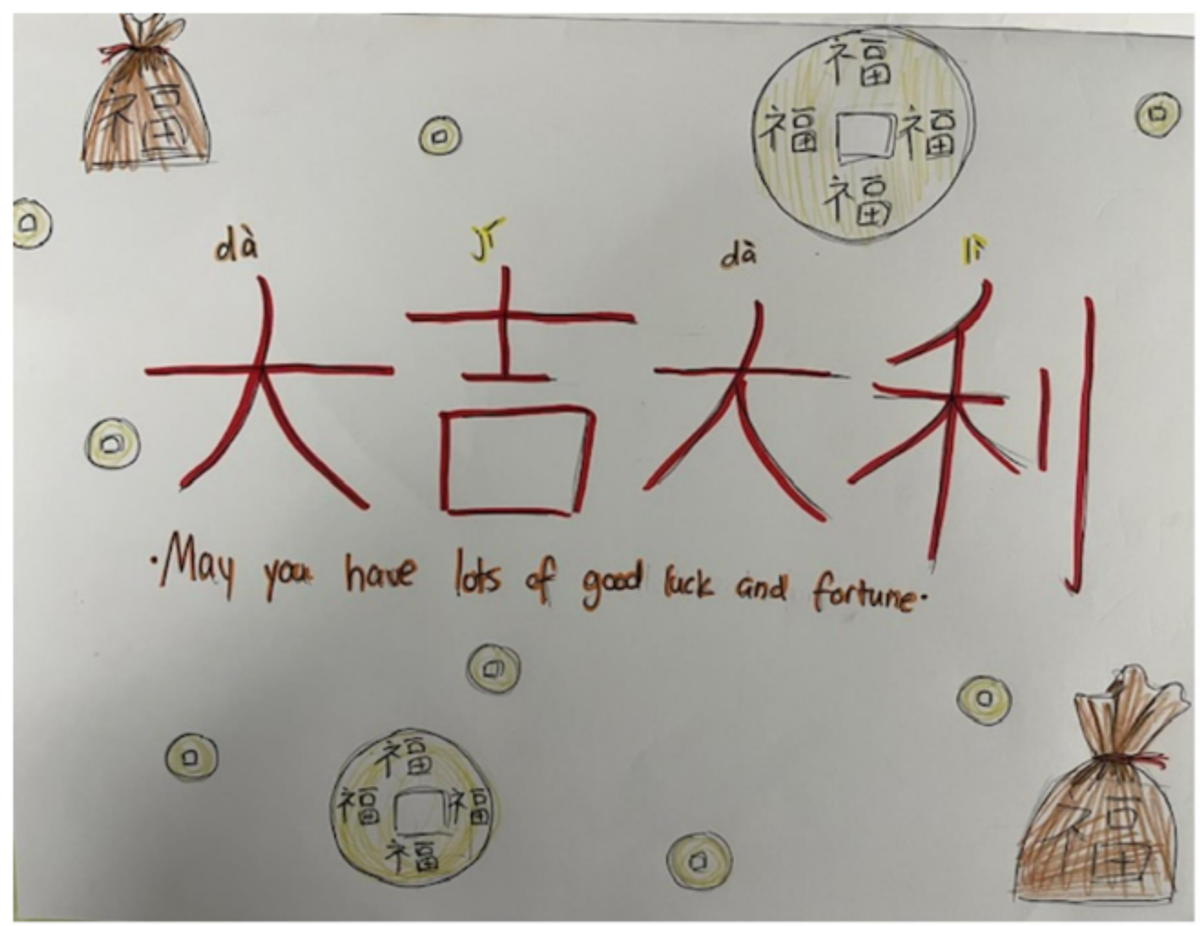 福
福
福 福
福
dà jí dà lì
大吉大利
·May you have lots of good luck and fortune·
福
福 福
福
福